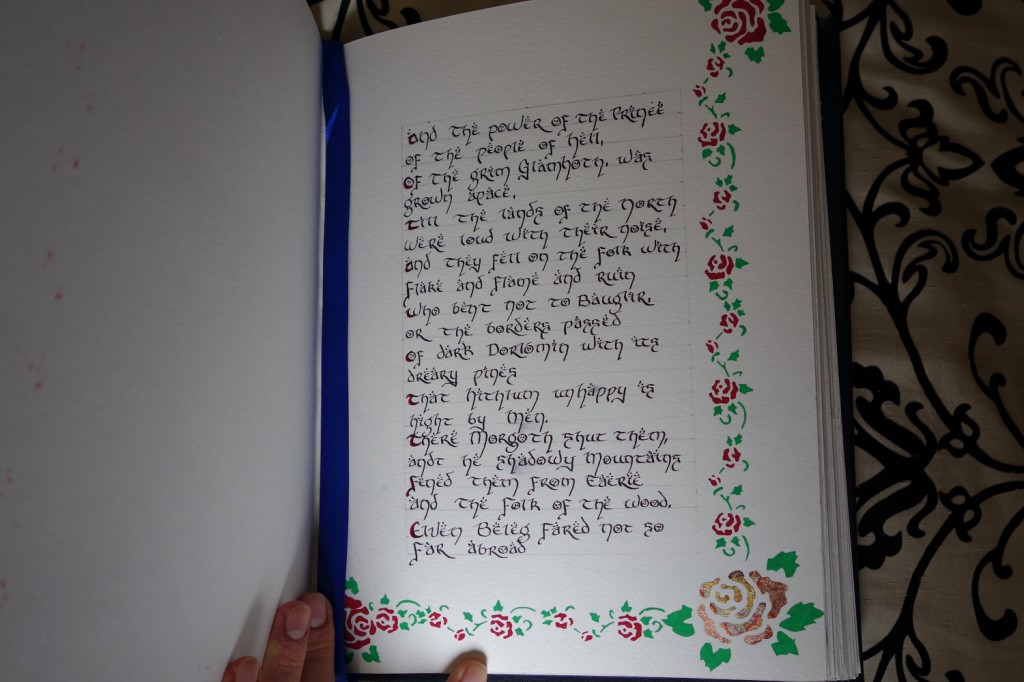 and the power of the Prince
of the people of hell,
Of the grim Glamhoth, was
grown apace,
Till the lands of the North
were loud with their noise,
and they fell on the folk with
flake and flame and ruin
who bent not to Bauglir,
or the borders passed
Of dark Dorlómin with its
dreary pines
That Hithlum unhappy is
hight by Men.
There Morgoth shut them,
andt he shadowy Mountains
fened them from Faërie
and the folk of the wood.
Even Beleg fared not so
far abroad